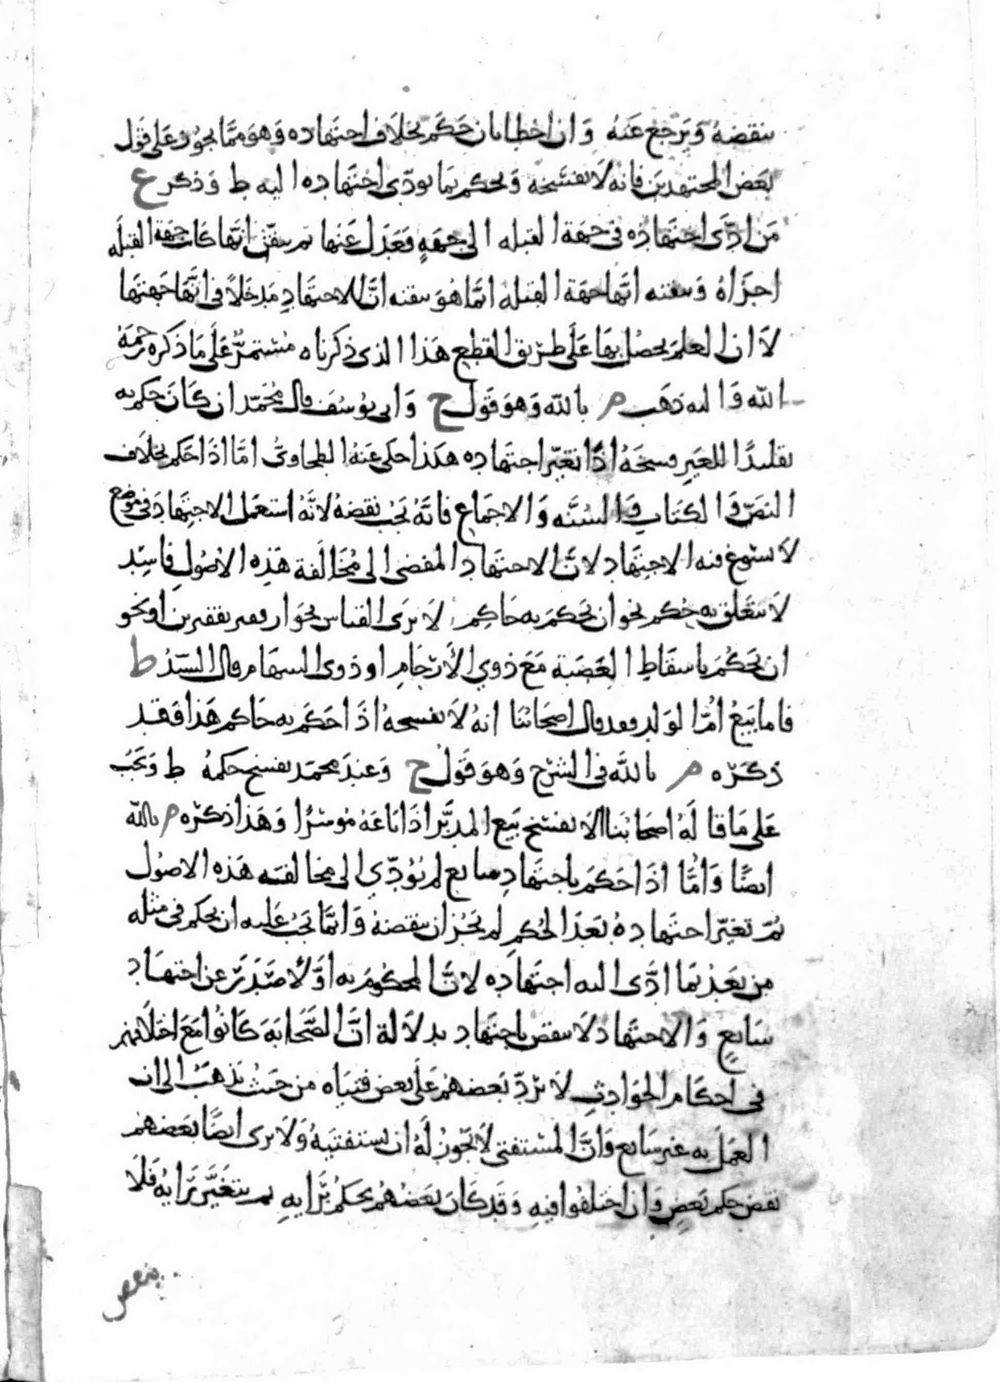 ينقضه ويرجع عنه وان اخطا بان حكم بخلاف اجتهاده وهو مما يجوز على قول
بعض المجتهدين فانه لا يفسخه ويحكم بما يودي اجتهاده اليه ط وذكر ع
من ادَّى اجتهاده في جهة القبله الى جهةٍ فعدل عنها ثم تيقن انها كانت جهة القبله
اجزاه وتيقنه انها جهة القبله انما هو تيقنه انَّ للاجتهادِ مدخلاً في انَّها جهتها
لا ان العلم يحصل بها على طريق القطع هذا الذي ذكرناه مستمرٌّ على ما ذكره رحمه
الله واليه ذهب م بالله وهو قول ح وابي يوسف وقال محمد ان كان حكم به
تقليدًا للغير فسخهُ اذا تغيّر اجتهاده هكذا حكى عنه الطحاوي امَّا اذا حكم بخلاف
النصّ والكتاب والسنَّه والاجماع فانه يجب نقضه لانَّهُ استعمل الاجتهاد في موضع
لا يسوغ فيه الاجتهاد لانَّ الاجتهاد المفضي الى مخالفة هذه الاصولِ فاسِد
لا يتعلق به حكم نحو ان يحكم به حاكم لا يرى القياس نحو ار وقفيز بقفيزين او نحو
ان يحكم باسقاطِ العصبة مع ذوي الارحامِ او ذوي السهام قال السيّدُ ط
فاما بيع امُّ الولد فقد قال اصحابنا انه لا يفسخه اذا حكم به حاكم هذا قد
ذكره م بالله في الشرح وهو قول ح وعند محمد يفسخ حكمهُ ط ويجبُ
على ما قاله اصحابنا الا يفسخ بيع المدبَّر اذا باعه موسرًا وهذا ذكره م بالله
ايضًا وامَّا اذا حكم باجتهادٍ سايع لم يؤدّي الى مخالفة هذه الاصول
ثمّ تغيّر اجتهادهُ بعد الحكمِ لم يجز ان ينقضهُ وانما يجبُ عليه ان يحكم في مثله
من بعد بما ادَّى اليه اجتهاده لانَّ المحكوم به اوَّلا صدر عن اجتهاد
سايعٍ والاجتهاد لا ينقض باجتهاد بدلالة انَّ الصَّحابة كانوا مع اختلافهم
في احكام الحوادثِ لا يردّ بعضهم على بعض فتياه من حيث يذهب الى ان
العمل به غير سايع وانَّ المستفتي لا يجوز له ان يستفتيهُ ولا يرى ايضًا بعضهم
نقض حكم بعضٍ وان اختلفوا فيه وقد كان بعضهم يحكمُ برَايهِ ثم يتغيَّر رَايه فلا
ينقض